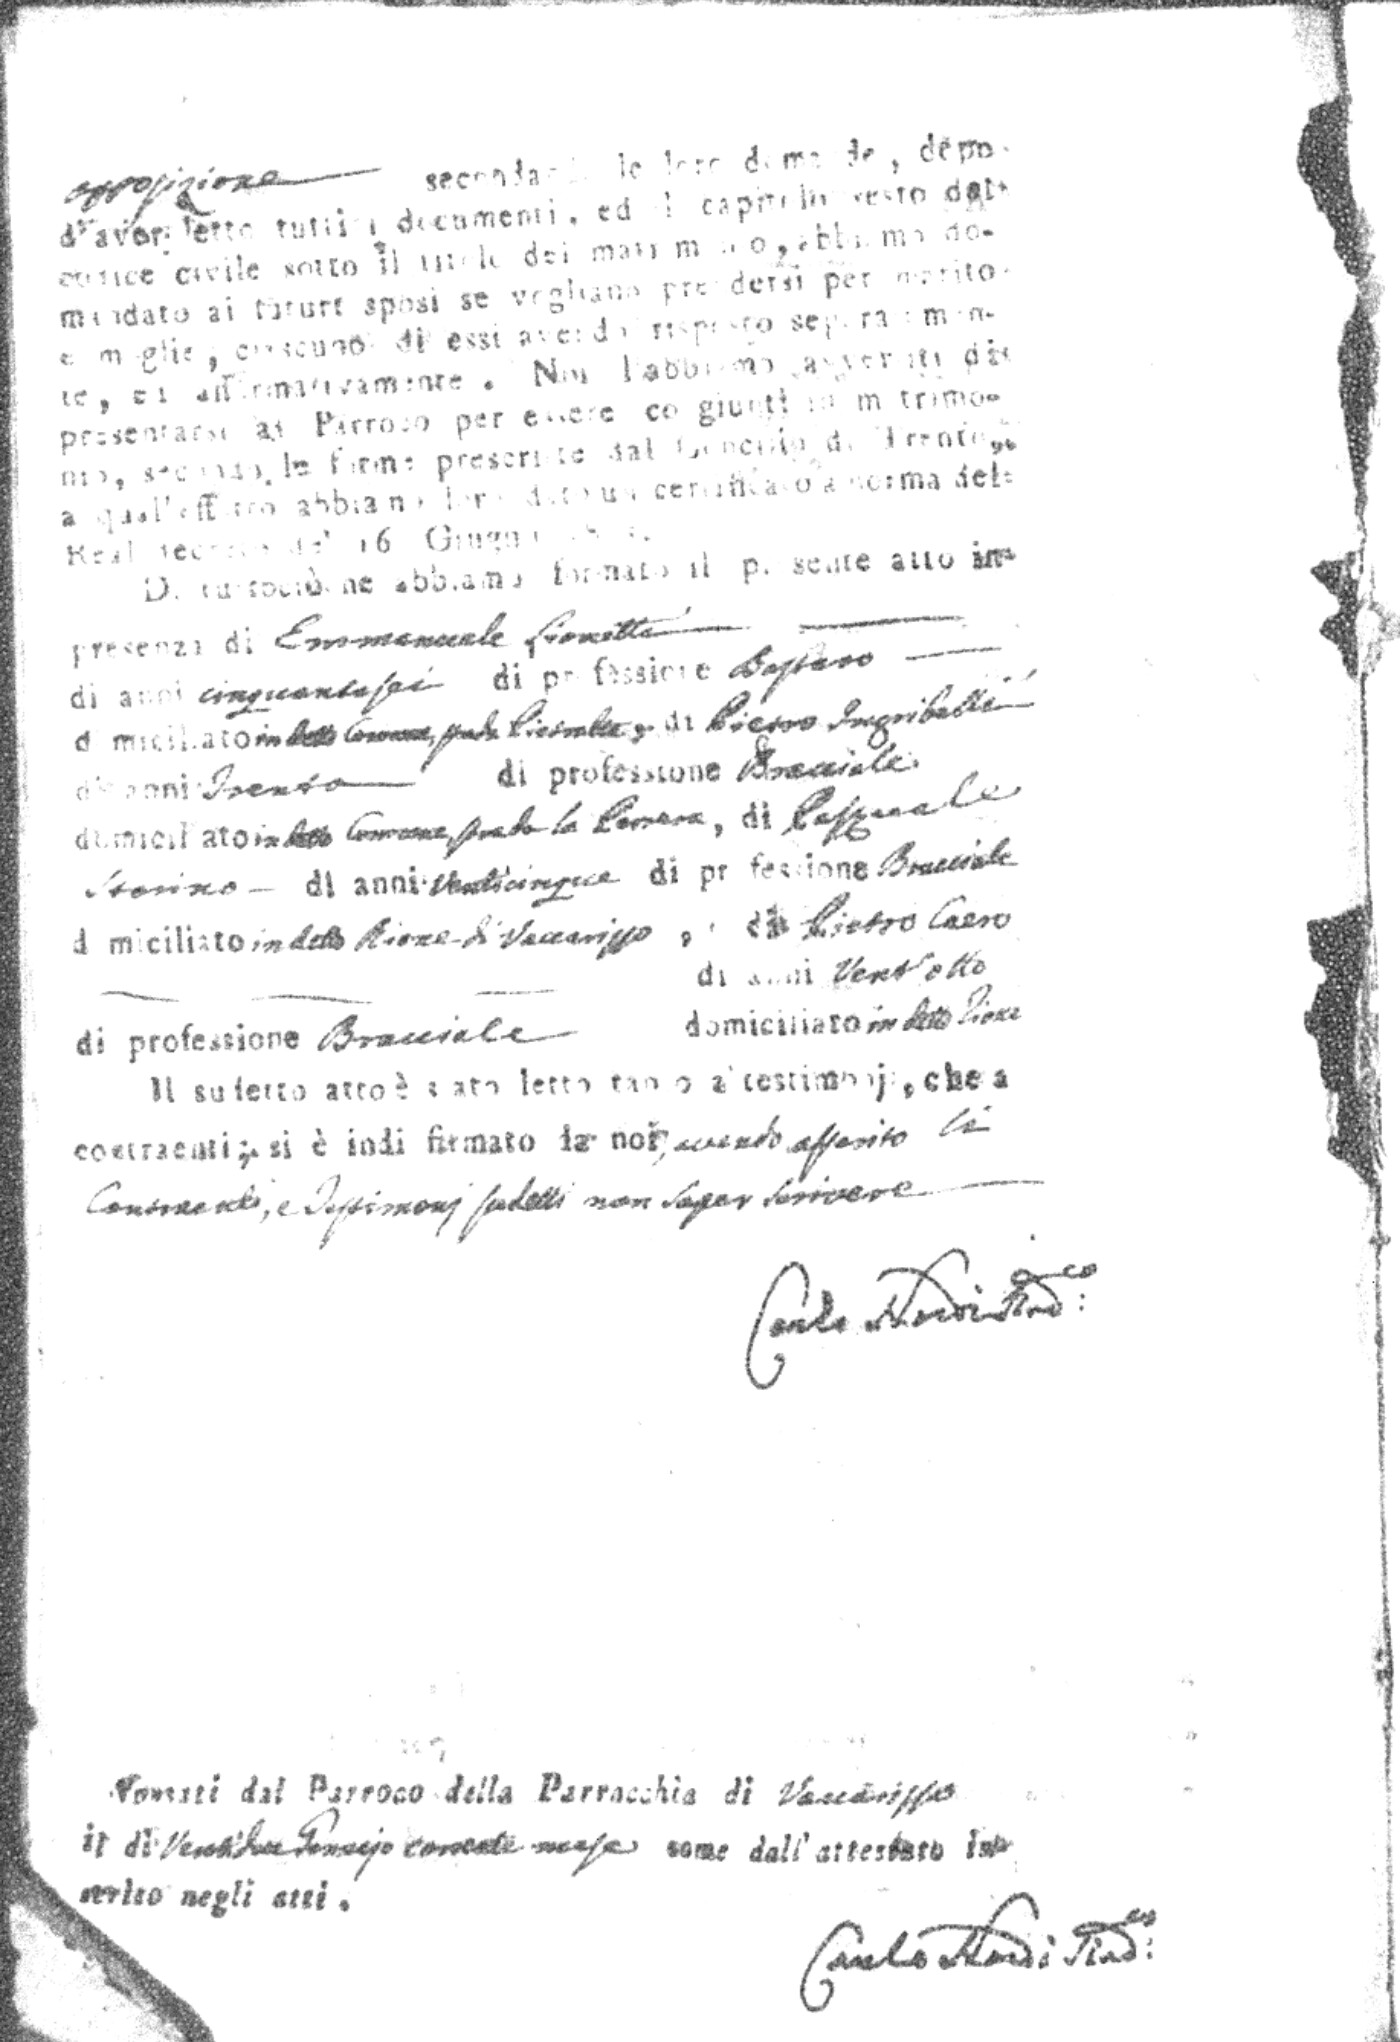 opposizione secondando le loro domande, dopo
d'aver letto tutti i documenti, ed il capitolo sesto del
codice civile sotto il titolo del matrimonio, abbiamo do-
mandato ai futuri sposi se vogliano prendersi per marito
e moglie, ciascuno di essi avendo risposto separatamen-
te, ed affirmativamente. Noi l'abbiamo avvertiti di
presentarsi al Parroco per essere congiunti in matrimo-
nio, secondo le forme prescritte dal Concilio di Trento,
a qual'effetto abbiamo loro dato un certificato a norma del
Real decreto de' 16 Giugno
Di tuttociò ne abbiamo formato il presente atto in
presenza di Emmanuele
di anni cinquantasei di professione
domiciliato in detto Comune, strada di Pietro
di anni Trenta di professione Bracciale
domiciliato in detto Comune, strada la , di Pasquale
di anni Venticinque di professione Bracciale
domiciliato in detto Rione di Vaccarisso, di Pietro
di anni Vent'otto
di professione Bracciale domiciliato in detto Rione
Il sudetto atto è stato letto tanto a' testimonj, che a
contraenti; si è indi firmato da noi, avendo asserito li
Contraenti, e Testimonj sudetti non saper scrivere
Carlo Sind.co
dal Parroco della Parrocchia di Vaccarisso
il dì corrente mese come dall'attestato in-
serito negli atti.
Carlo Sind.co